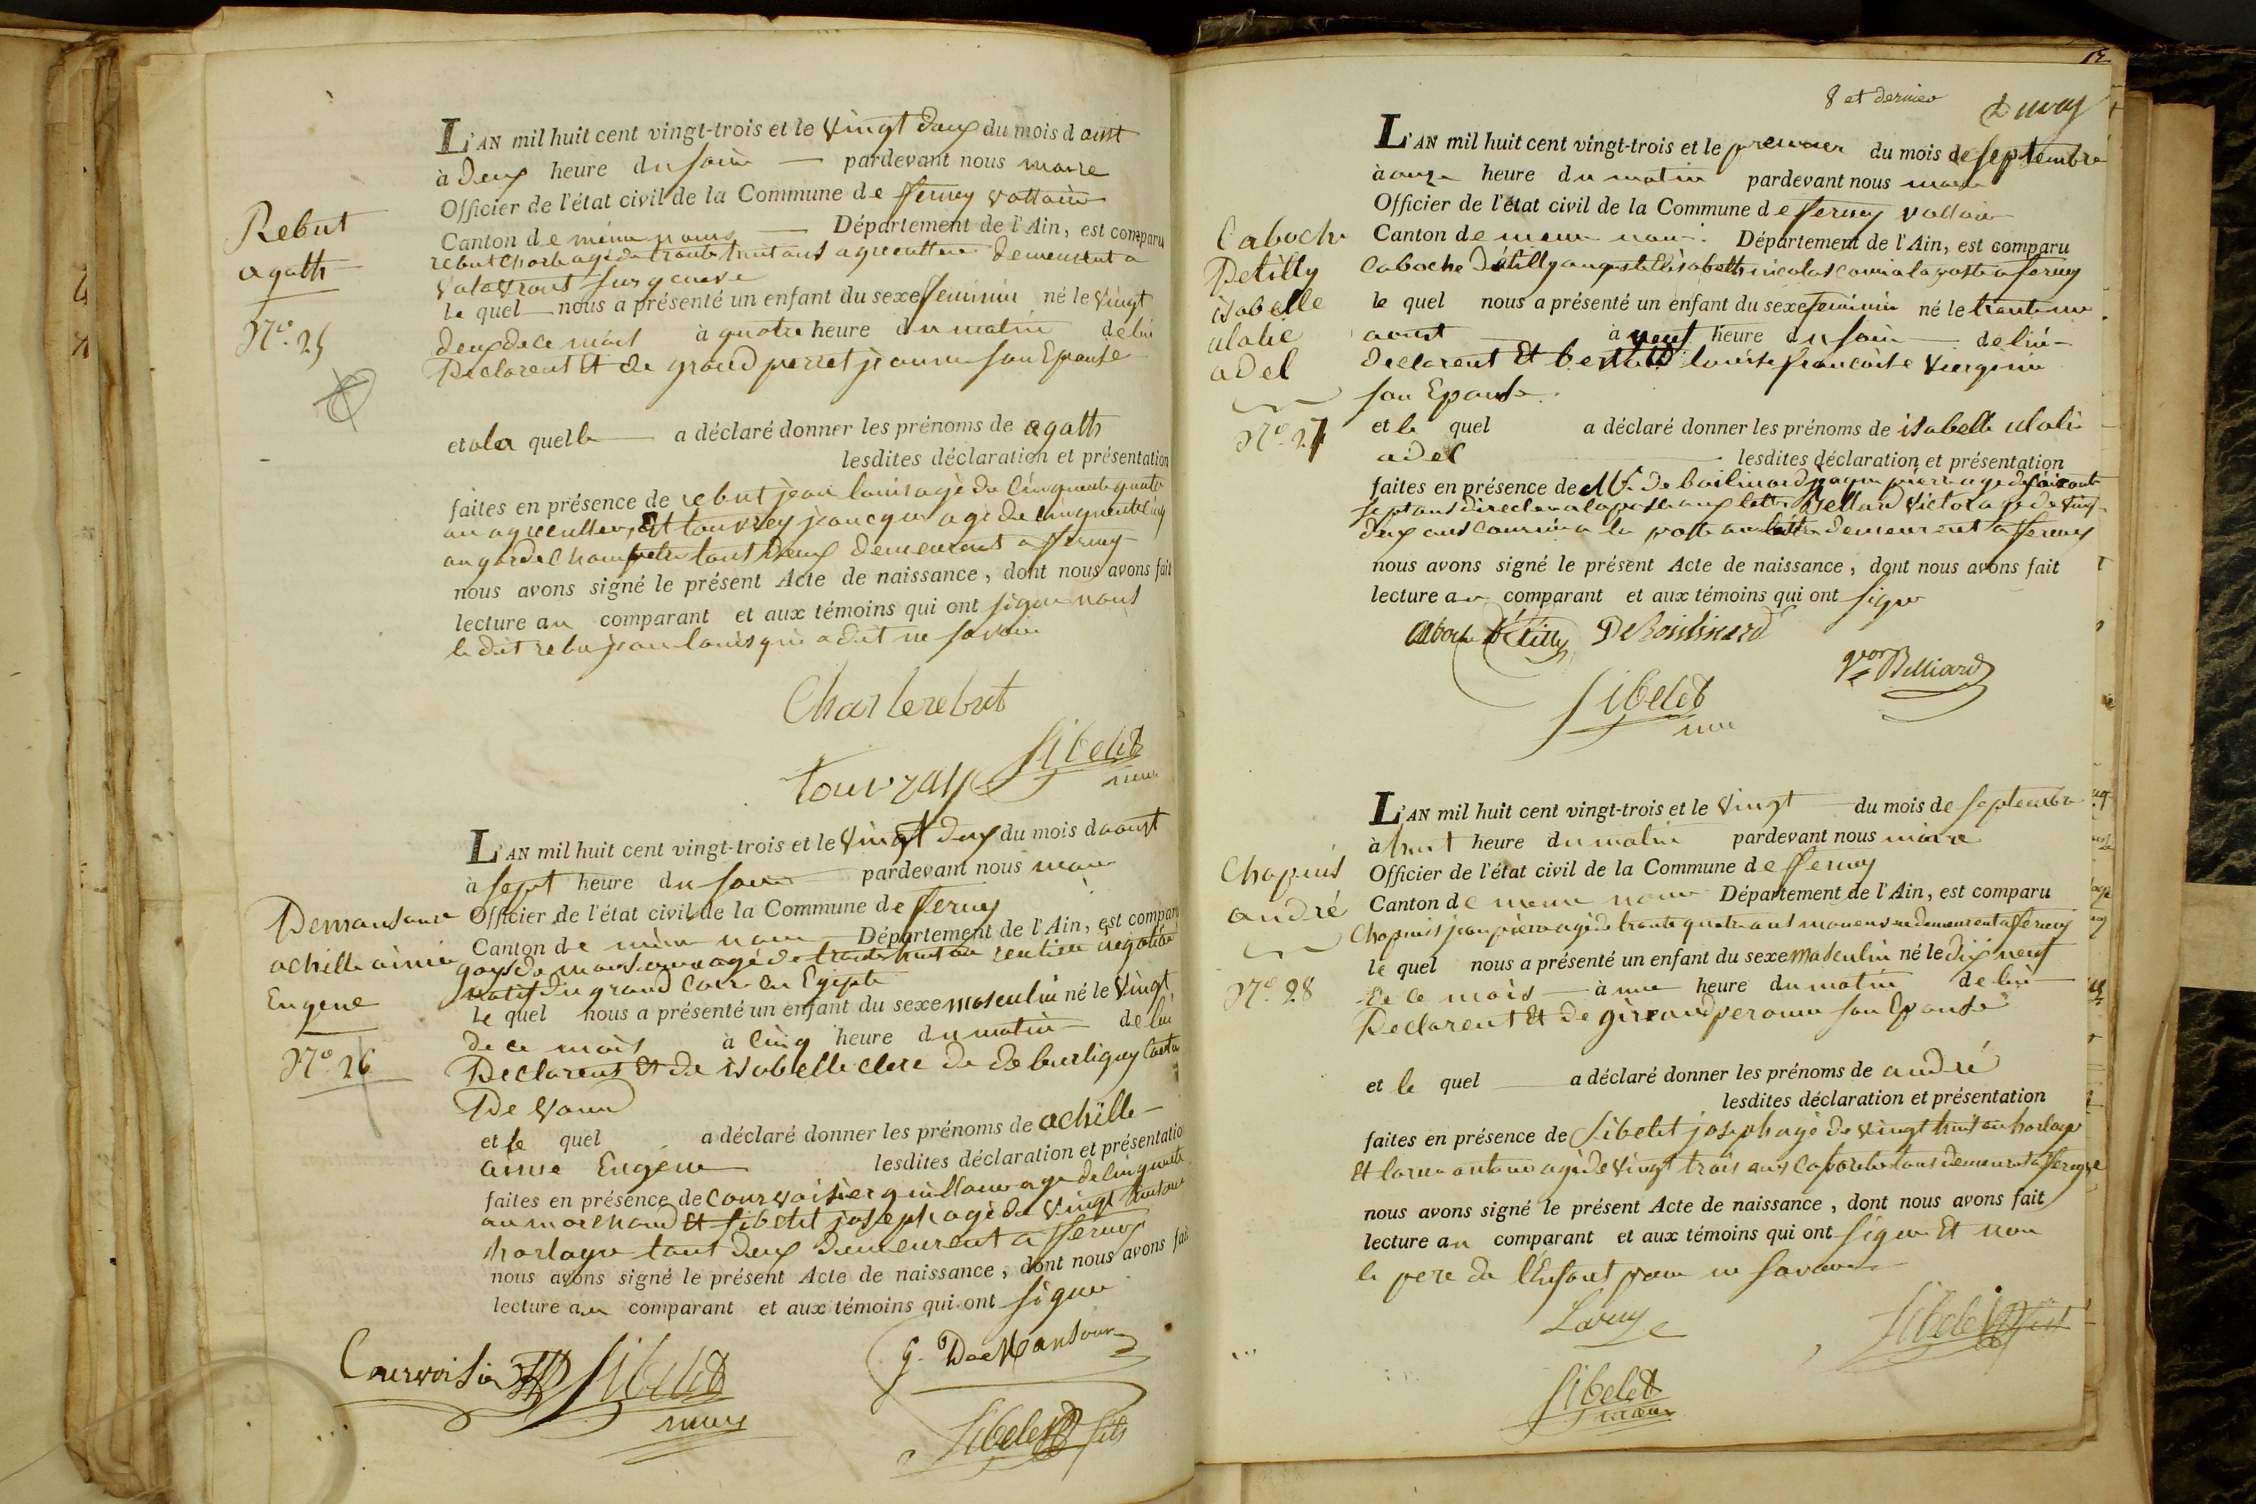 Rebut
agath
N.º 25
L'AN mil huit cent vingt-trois et le vingt deux du mois d aust
à deux heure du soir pardevant nous maire
Officier de l'état civil de la Commune de fferney voltaire
Canton de même noms Département de l'Ain, est comparu
rebut Charle agé de trante huit ans agriculteur demeurant a
le quel nous a présenté un enfant du sexe feminin né le vingt
deux de ce mois à quatre heure du matin de lui
Declarent Et de grand perret jeanne son Epouse
et a la quelle a déclaré donner les prénoms de agath
lesdites déclaration et présentation
faites en présence de rebut jean louis agé de cinquante quatre
an agriculteur, Et touvrey jeacque agé de cinquante cinq
an garde Champetre tout deux demeurant a fferney
nous avons signé le présent Acte de naissance, dont nous avons fait
lecture au comparant et aux témoins qui ont signé nous
le dit rebu jean louis qui a dit ne savoir
Charle rebut
Touvray
Sibelet
Demansoure
achille aimé
Eugene
N.º 26
L'AN mil huit cent vingt-trois et le vingt deux du mois d aoust
à sept heure du soir pardevant nous maire
Officier de l'état civil de la Commune de fferney
Canton de même nom Département de l'Ain, est comparu
agé de trante huit an rentier
natif du grand Caire en Egipte
le quel nous a présenté un enfant du sexe masculin né le vingt
de ce mois à cinq heure du matin de lui
Declarent Et de isabelle clere de
De Vaud
et le quel a déclaré donner les prénoms de achille
aime Eugene lesdites déclaration et présentation
faites en présence de courvoisier guillaume age de cinquante
an marchand Et Sibelet joseph agé de vingt huit ans
horloger tout deux demeurent a fferney
nous avons signé le présent Acte de naissance, dont nous avons fait
lecture au comparant et aux témoins qui ont signé
Courvoisier
Sibelet
G. De Mansour
Sibelet fils
8 et dernier
L'AN mil huit cent vingt-trois et le premier du mois de septembre
à onze heure du matin pardevant nous maire
Officier de l'état civil de la Commune de fferney voltaire
Canton de meme nom Département de l'Ain, est comparu
Caboche
Detilly
isabelle
ulalie
adel
N.º 27
Caboche Détilly auguste Elisabeth nicolas comis a la poste a ferney
le quel nous a présenté un enfant du sexe feminin né le trente un
aoust à neuf heure du soir de lui
declarent Et louise francoise viergenie
son Epouse
et le quel a déclaré donner les prénoms de isabelle ulalie
adel lesdites déclaration et présentation
faites en présence de
demeurent a fferney
nous avons signé le présent Acte de naissance, dont nous avons fait
lecture au comparant et aux témoins qui ont signé
Caboche Détilly
DeBoislinard
Belliard
Sibelet
Chapuis
andré
N.º 28
L'AN mil huit cent vingt-trois et le vingt du mois de septembre
à huit heure du matin pardevant nous maire
Officier de l'état civil de la Commune de fferney
Canton de meme nom Département de l'Ain, est comparu
Chapuis jean pierre agé de trante quatre ans demeurent a fferney
le quel nous a présenté un enfant du sexe masculin né le dix neuf
de ce mois à une heure du matin de lui
Declarent Et de son Epouse
et le quel a déclaré donner les prénoms de andré
lesdites déclaration et présentation
faites en présence de Sibelet joseph agé de vingt huit an horloger
Et antoine agé de vingt trois ans tous demeurent a fferney
nous avons signé le présent Acte de naissance, dont nous avons fait
lecture au comparant et aux témoins qui ont signé Et non
le pere de l'Enfant pour ne savoir
Sibelet fils
Sibelet
maire